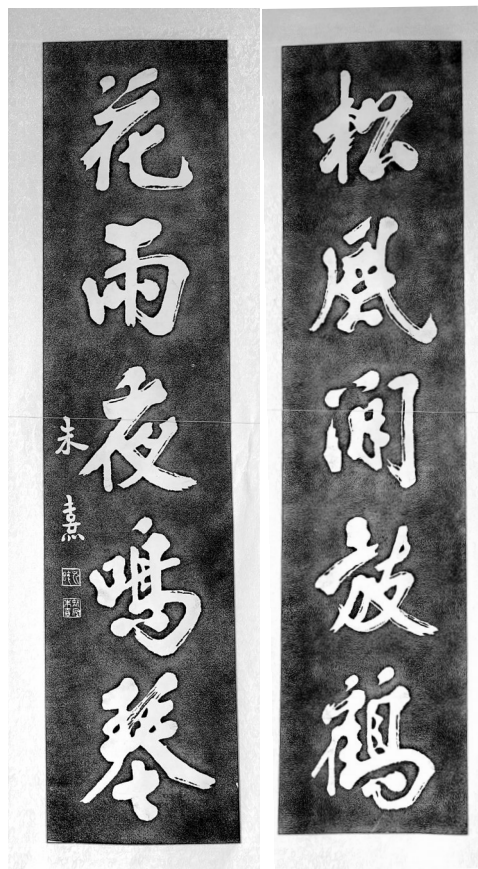 松風閒放鶴
花雨夜鳴琴
朱熹